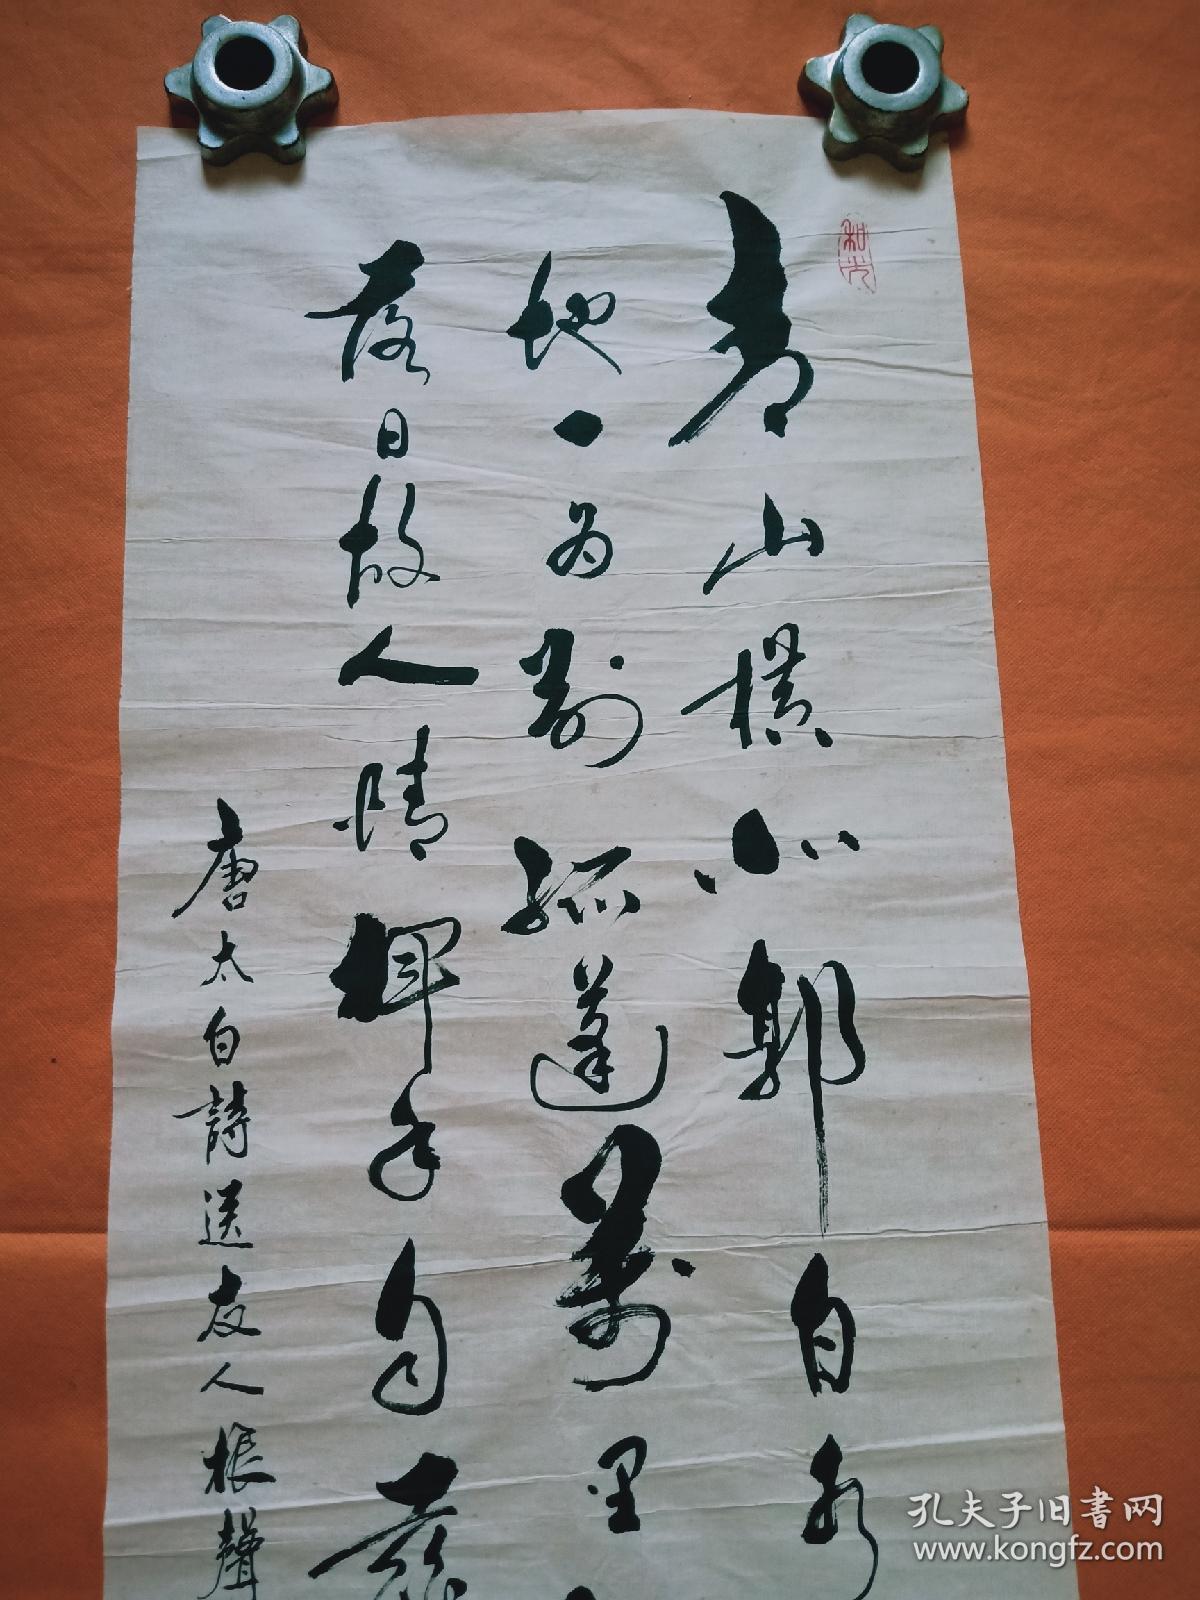 和光
青山橫北郭白水
地一為別孤蓬萬里
落日故人情揮手自茲
唐太白詩送友人根聲
孔夫子旧書网
www.kongfz.com